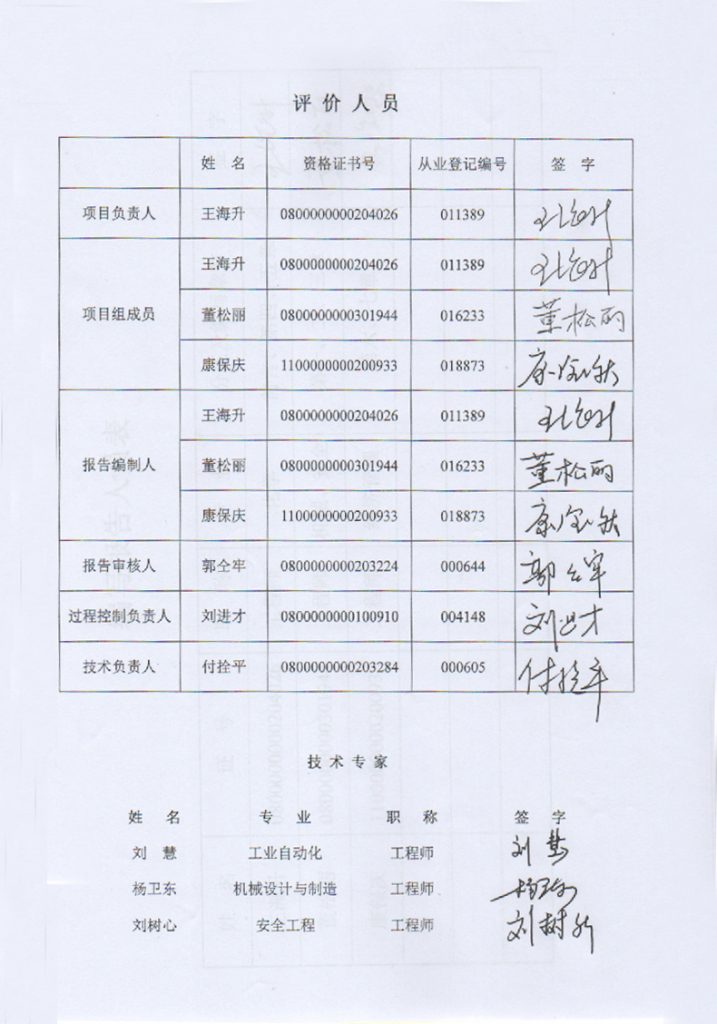 评价人员
姓 名 资格证书号 从业登记编号 签 字
项目负责人 王海升 0800000000204026 011389 王海升
项目组成员 王海升 0800000000204026 011389 王海升
董松丽 0800000000301944 016233 董松丽
康保庆 1100000000200933 018873
报告编制人 王海升 0800000000204026 011389 王海升
董松丽 0800000000301944 016233 董松丽
康保庆 1100000000200933 018873
报告审核人 郭仝牢 0800000000203224 000644 郭仝牢
过程控制负责人 刘进才 0800000000100910 004148 刘进才
技术负责人 付拴平 0800000000203284 000605 付拴平
技术专家
姓 名 专 业 职 称 签 字
刘 慧 工业自动化 工程师 刘慧
杨卫东 机械设计与制造 工程师
刘树心 安全工程 工程师 刘树心